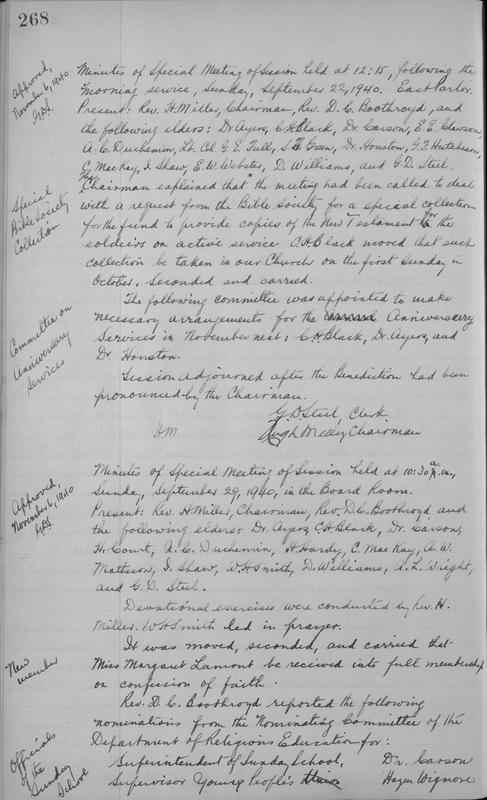 268
Approved,
November 6, 1940
Minutes of Special Meeting of Session held at 12:15, following the
morning service, Sunday, September 22, 1940. East Parlor.
Present: Rev. H. Miller, Chairman, Rev. D. C. Boothroyd, and
the following elders: Dr. Ayers, C. H. Black, Dr. Carson, E. E. Clawson,
A. C. Duchemin, Lt. Col. G. E. Full, S. F. Green, Dr. Houston, G. F. Hutcheson,
C. MacKay, I. Shaw, E. W. Webster, D. Williams, and G. D. Steel.
Special
Bible Society
Collection
The Chairman explained that the meeting had been called to deal
with a request from the Bible Society for a special collection
for the fund to provide copies of the New Testament for the
soldiers on active service. C. H. Black moved that such
collection be taken in our Church on the first Sunday in
October. Seconded and carried.
Committee on
Anniversary
Services
The following committee was appointed to make
necessary arrangements for the Anniversary
Services in November next: C. H. Black, Dr. Ayers, and
Dr. Houston.
Session adjourned after the Benediction had been
pronounced by the Chairman.
G. D. Steel, Clerk
H.M. Hugh Miller, Chairman
Approved,
November 6, 1940
GDS.
Minutes of Special Meeting of Session held at 10:30 a.m.,
Sunday, September 29, 1940, in the Board Room.
Present: Rev. H. Miller, Chairman, Rev. D. C. Boothroyd and
the following elders: Dr. Ayers, C. H. Black, Dr. Carson,
H. Court, A. C. Duchemin, H. Hardy, C. MacKay, A. W.
Matheson, I. Shaw, W. H. Smith, D. Williams, A. L. Wright,
and G. D. Steel.
Devotional exercises were conducted by Rev. H.
Miller. W. H. Smith led in prayer.
New
member
It was moved, seconded, and carried that
Miss Margaret Lamont be received into full membership
on confession of faith.
Officials
of the
Sunday
School
Rev. D. C. Boothroyd reported the following
nominations from the Nominating Committee of the
Department of Religious Education for:
Superintendent of Sunday School, Dr. Carson
Supervisor Young People's Hazen Wigmore